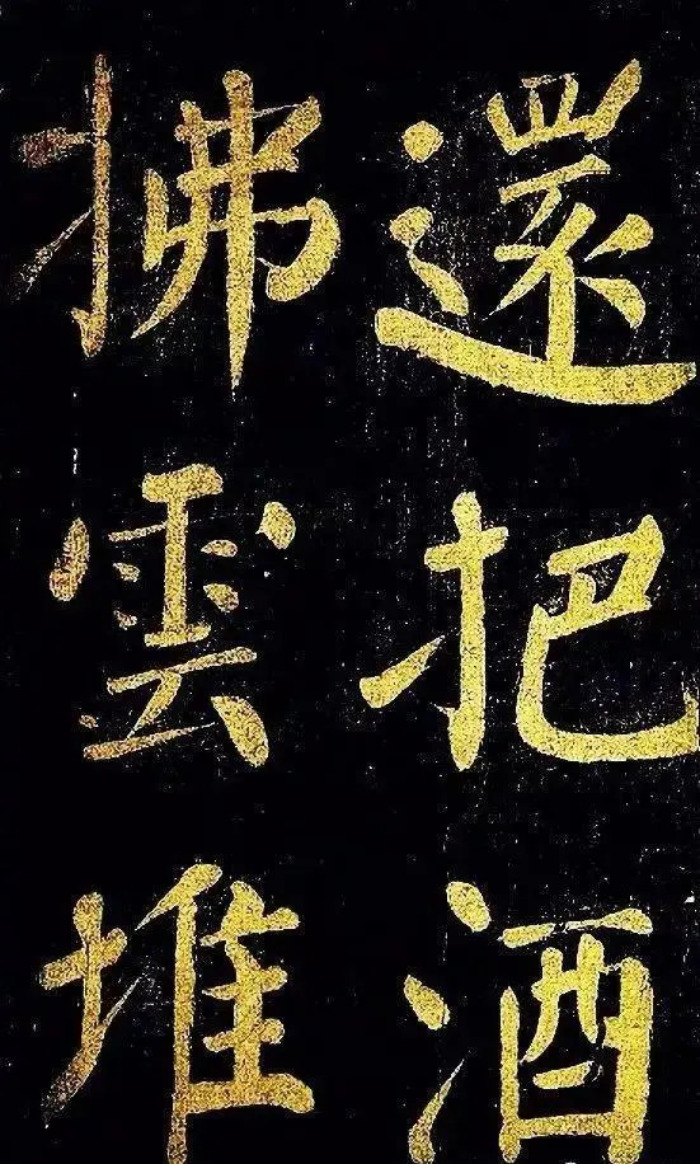 還把酒
拂雲堆